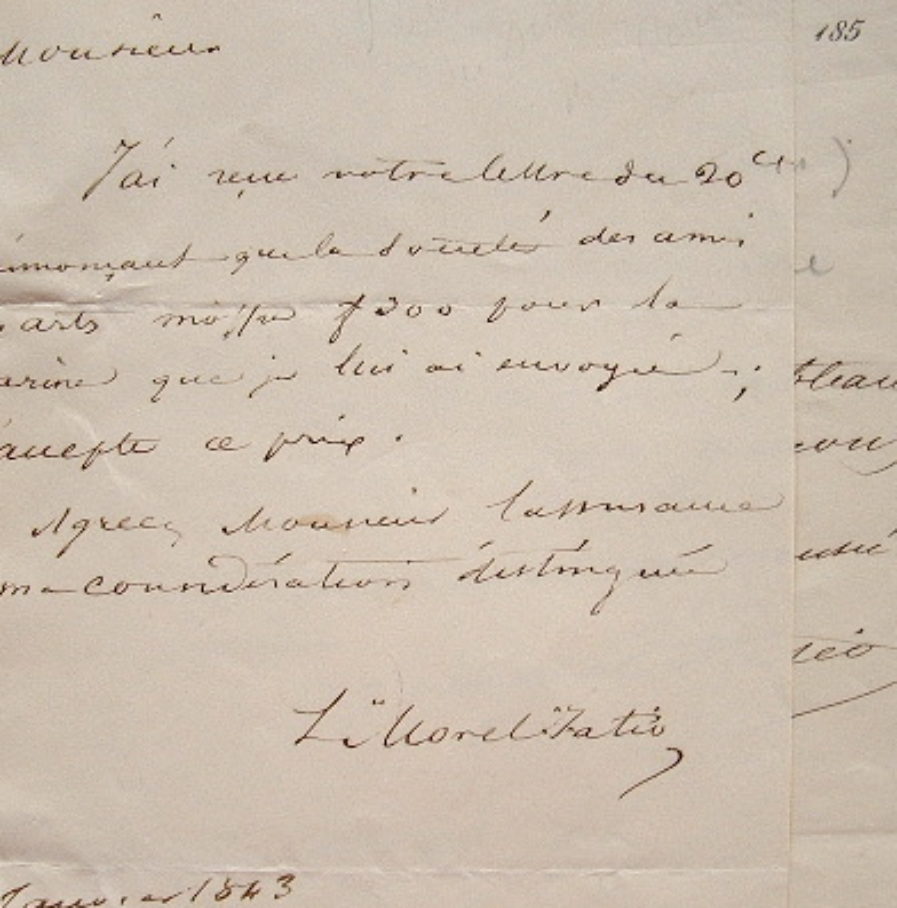 185
Monsieur
J'ai reçue votre lettre du 20 Ct
annonçant que la Société des amis
arts m'offre f 300 pour la
arine que je lui ai envoyée ;
j'accepte ce prix .
Agreez Monsieur l'assurance
ma considération distinguée
L. Morel-Fatio
Janvier 1843